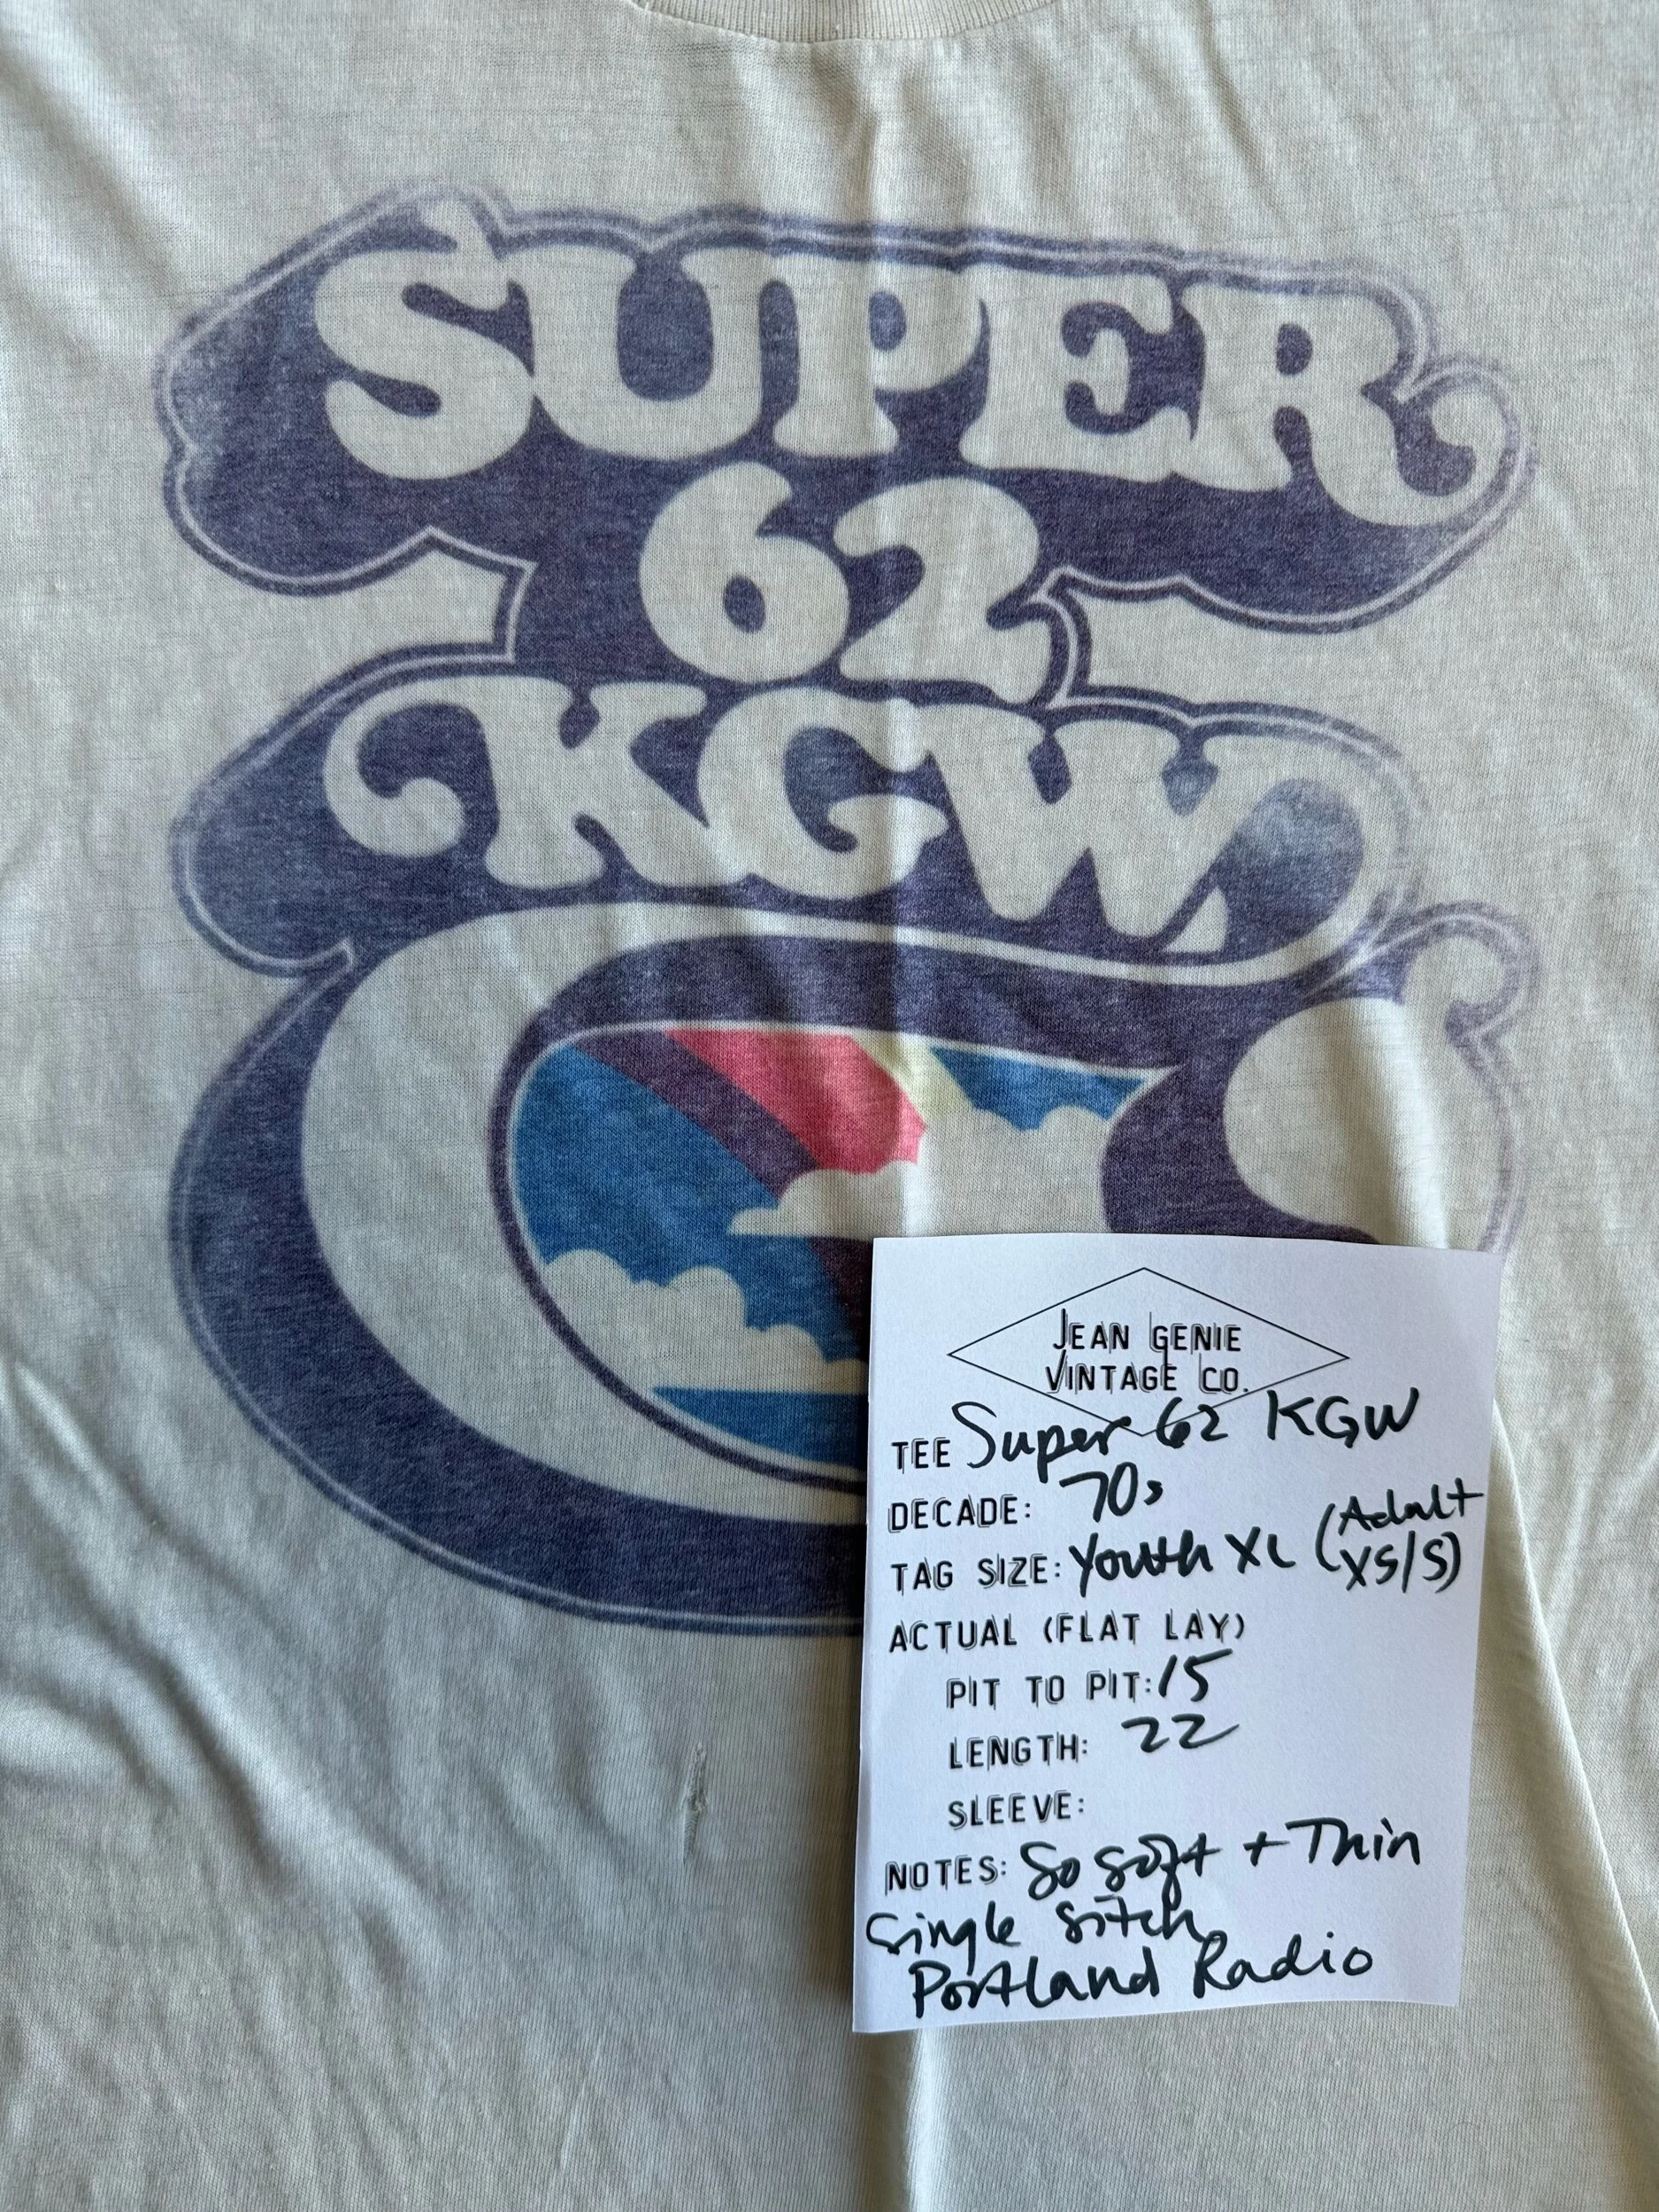 SUPER
62
KGW
JEAN GENIE
VINTAGE CO.
TEE Super 62 KGW
DECADE: 70s
TAG SIZE: Youth XL (Adult XS/S)
ACTUAL (FLAT LAY)
PIT TO PIT: 15
LENGTH: 22
SLEEVE:
NOTES: So soft + Thin
Single Sitch
Portland Radio